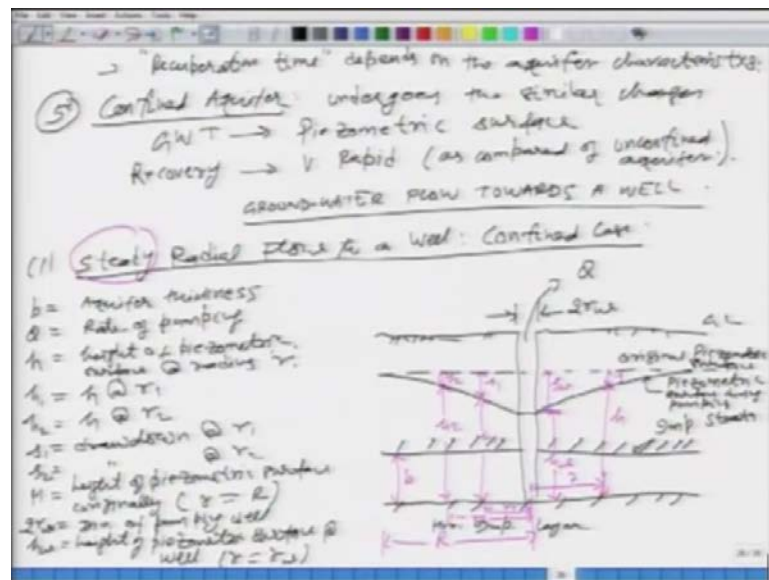 → "Recuperation time" depends on the aquifer characteristics.
5) Confined Aquifer: undergoes the similar changes
GWT → Piezometric surface
Recovery → V Rapid (as compared of unconfined aquifer).
GROUND-WATER FLOW TOWARDS A WELL.
(1) Steady Radial Flow to a Well: Confined Case
b = Aquifer thickness
Q = Rate of pumping
h = height of piezometric surface @ radius r.
h1 = h @ r1
h2 = h @ r2
s1 = drawdown @ r1
s2 = " @ r2
H = height of piezometric surface originally (r = R)
2rw = of pumping well
hw = height of piezometric surface @ well (r = rw)
Q
2rw
GL
original Piezometric surface
Piezometric surface during pumping
Imp. Strata
h
b
r
Imp. Layer
R